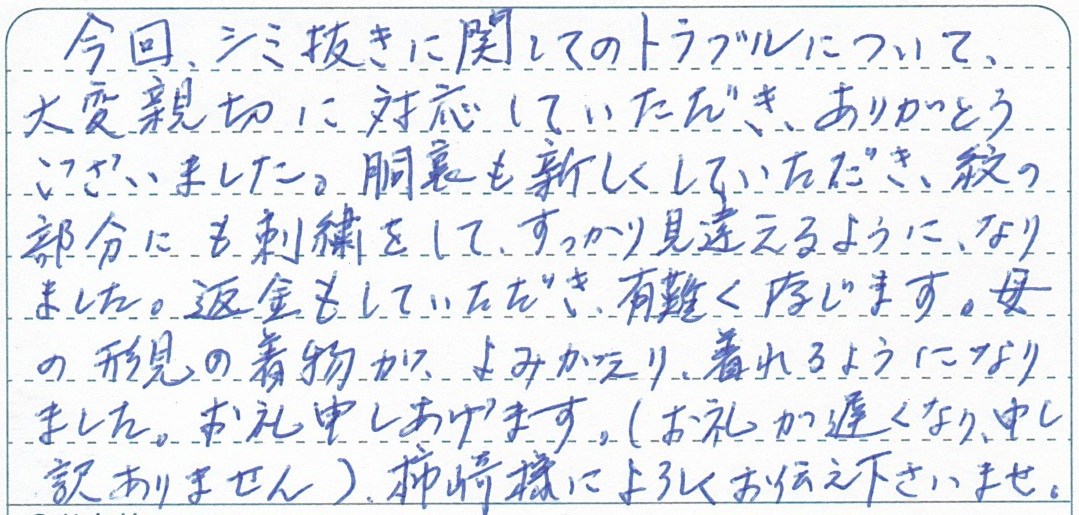 今回、シミ抜きに関してのトラブルについて、
大変親切に対応していただき、ありがとう
ございました。胴裏も新しくしていただき、紋の
部分にも刺繍をして、すっかり見違えるように、なり
ました。返金もしていただき、有難く存じます。母
の形見の着物が、よみがえり、着れるようになり
ました。お礼申しあげます。(お礼が遅くなり、申し
訳ありません)、柿崎様によろしくお伝え下さいませ。